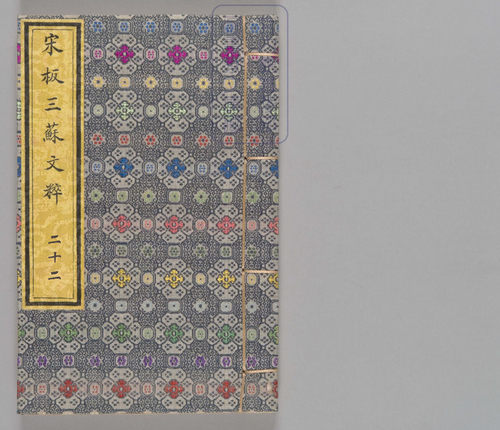 宋板三蘇文粹 二十二